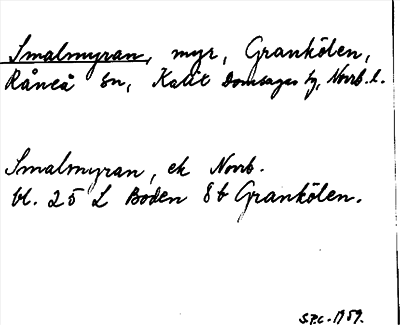 Smalmyran, myr, Grankölen,
Råneå sn, Kalix domsagas tg, Norrb. l.
Smalmyran, ek Norrb.
bl. 25 L Boden 8b Grankölen.
S.P.C. 1959.